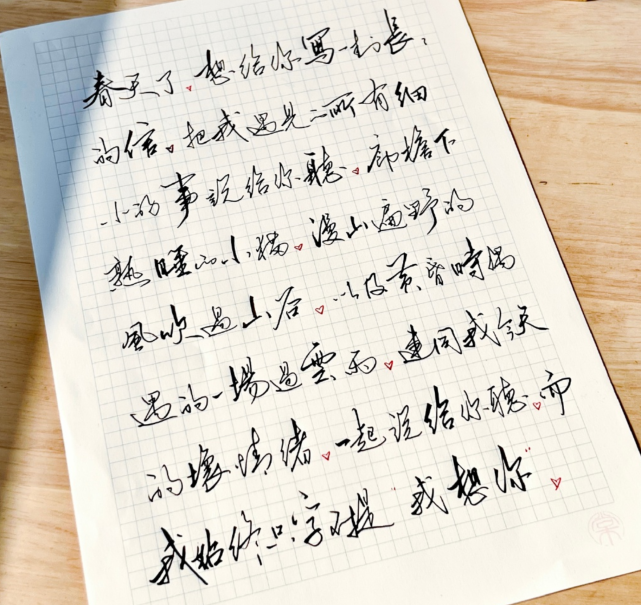 春天了♥想给你寫一封長长
的信♥把我遇見的所有细
小的事说给你聽♥廊檐下
熟睡的小猫♥漫山遍野的
風吹過山谷♥以及黄昏時偶
遇的一場過雲雨♥連同我今天
的壞情绪♥一起说给你聽♥而
我始终只字不提“我想你”♥